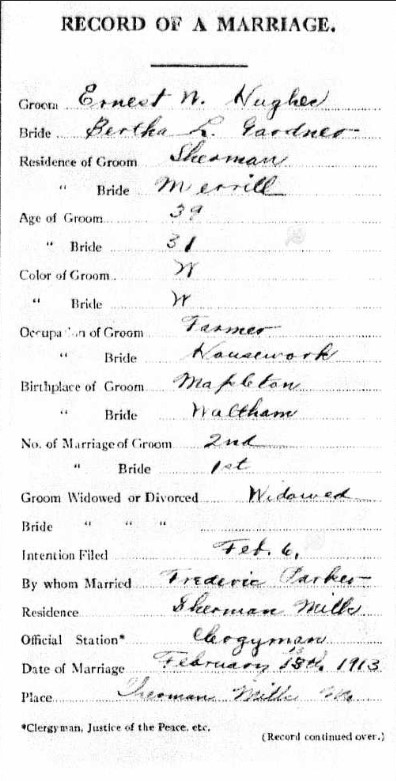 RECORD OF A MARRIAGE.
Groom Ernest W. Hughes
Bride Bertha L. Gardner
Residence of Groom Sherman
" Bride Merrill
Age of Groom 39
" Bride 31
Color of Groom W
" Bride W
Occupation of Groom Farmer
" Bride Housework
Birthplace of Groom Mapleton
" Bride Waltham
No. of Marriage of Groom 2nd
" Bride 1st
Groom Widowed or Divorced Widowed
Bride " " "
Intention Filed Feb. 6,
By whom Married Frederic Parker
Residence Sherman Mills
Official Station* Clergyman
Date of Marriage February 1913
Place Sherman Mills Me.
*Clergyman, Justice of the Peace, etc.
(Record continued over.)